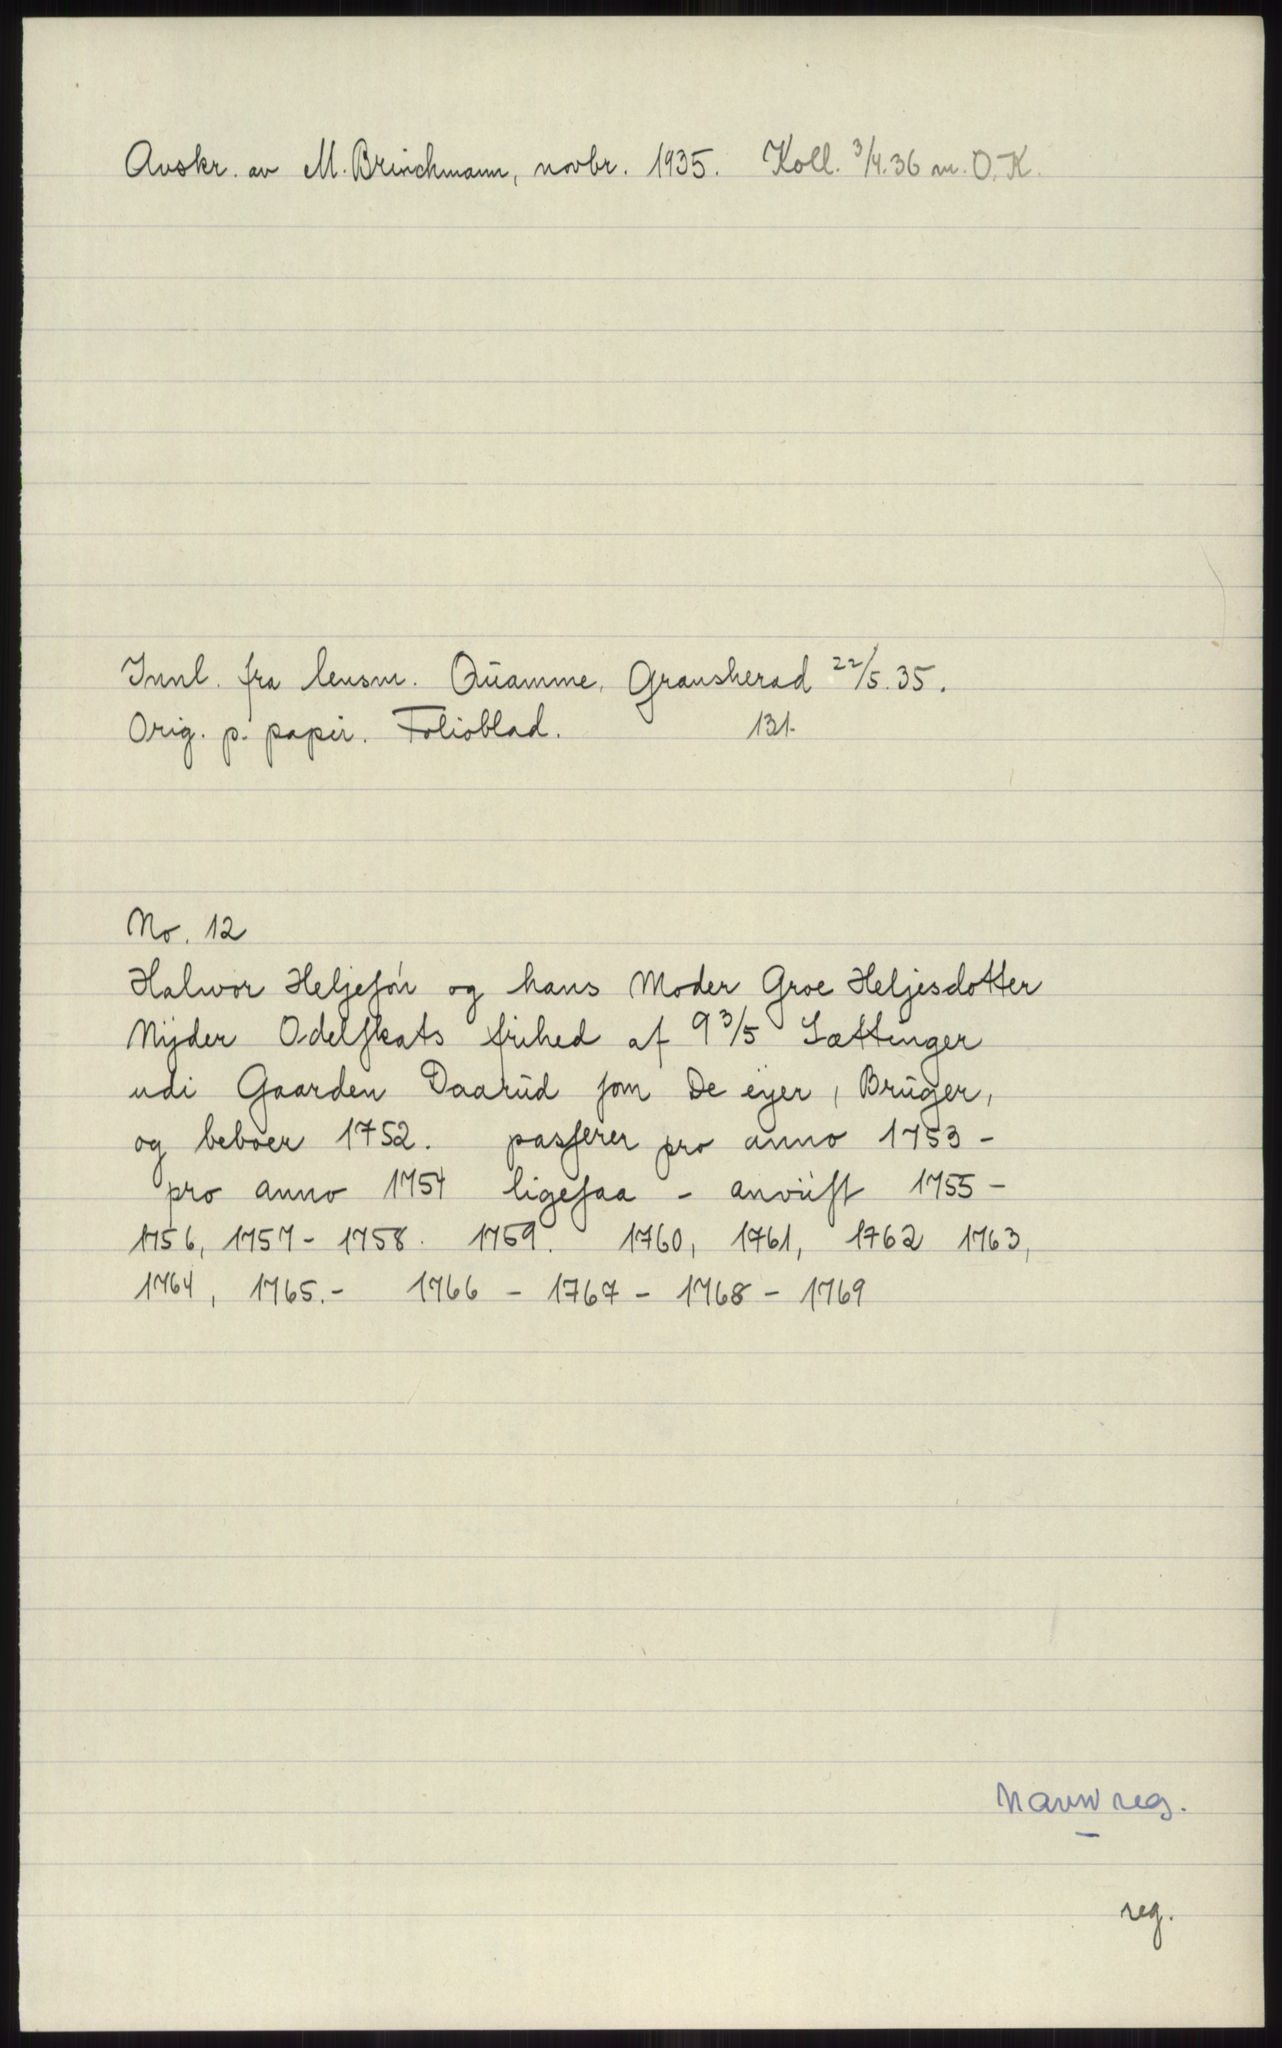 Avskr. av M. Brinchmann, novbr. 1935. Koll. 3/4.36 m. O.K.
Innl. fra lensm. Qŭamme, Gransherad 22/5.35.
Orig. p. papir. Folioblad. 131.
No. 12
Halwor Heljeſón og hans Moder Groe Heljesdotter
Nÿder Odelſkats frihed af 9 3/5 Sættinger
udi Gaarden Daarŭd ſom De eÿer, Brŭger,
og beboer 1752. pasſerer pro anno 1753 -
pro anno 1754 ligeſaa - anviiſt 1755 -
1756, 1757 - 1758. 1759. 1760, 1761, 1762 1763,
1764, 1765. - 1766 - 1767 - 1768 - 1769
Navnreg.
reg.